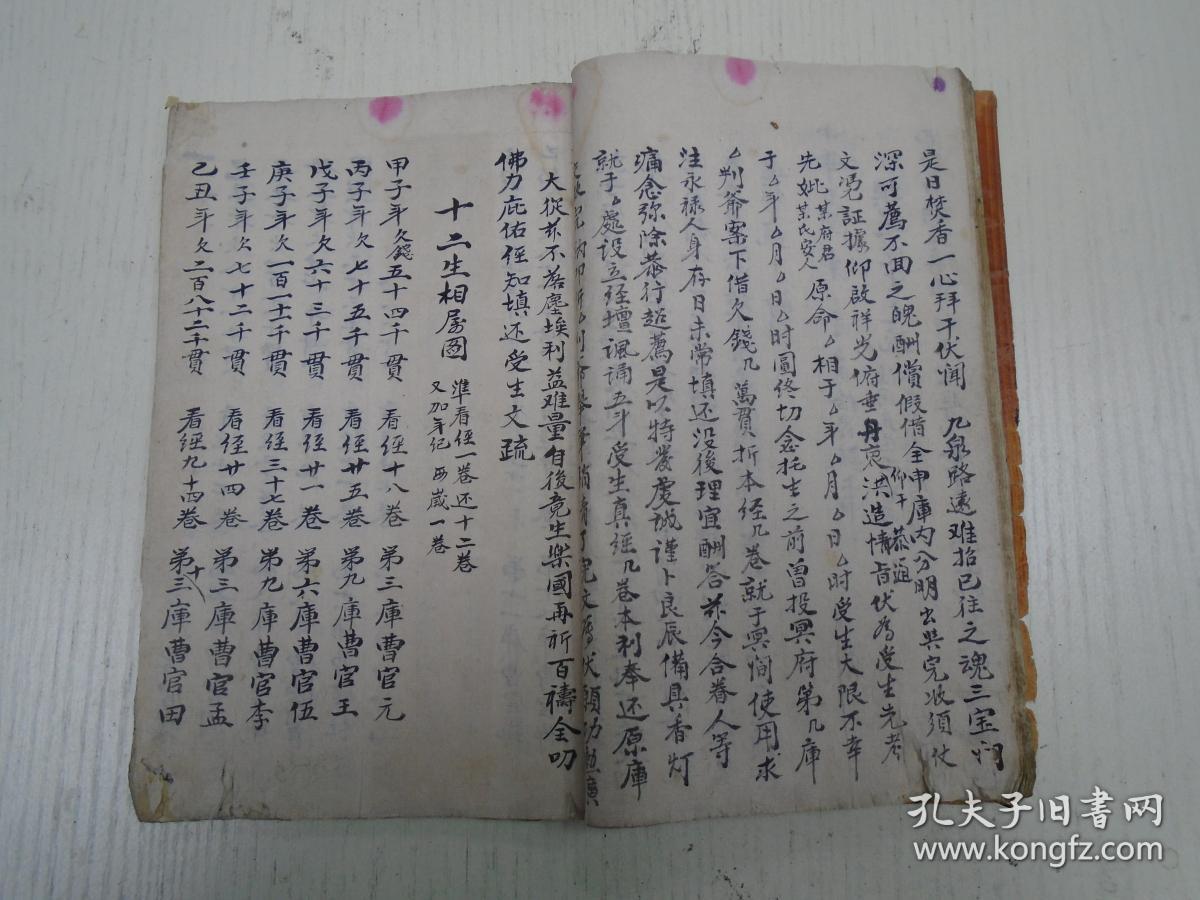 是日焚香一心拜干伏聞 九泉路遠难招已往之魂三宝洞
深可薦不回之魄酬償假借全申庫内分明出與完彼須仗
文凴証據仰啟祥光俯垂丹衷洪造情旨伏為受生先考
仰干 恭迎
先妣某府君某氏安人原命厶相于厶年厶月厶日厶时受生大限不幸
于厶年厶月厶日厶时圓终切念托生之前曾投冥府第几庫
厶判爺案下借欠錢几萬貫折本经几卷就于冥间使用求
注永禄人身存日未常填还没後理宜酬答兹今合眷人等
痛念弥除恭行超薦是以特發虔诚谨卜良辰備具香灯
就于厶處设立经壇讽诵五斗受生真经几卷本利奉还原庫
大從兹不落塵埃利益难量自後竟生樂國再祈百禱全叨
佛力庇佑经知填还受生文疏
十二生相属圖
準看经一卷还十二卷
又加年纪 西歲一卷
甲子年欠錢五十四千貫 看经十八卷 第三庫曹官元
丙子年欠七十五千貫 看经廿五卷 第九庫曹官王
戊子年欠六十三千貫 看经廿一卷 第六庫曹官伍
庚子年欠一百一十千貫 看经三十七卷 第九庫曹官李
壬子年欠七十二千貫 看经廿四卷 第三庫曹官孟
乙丑年欠二百八十二千貫 看经九十四卷 第十三庫曹官田
孔夫子旧书网
www.kongfz.com